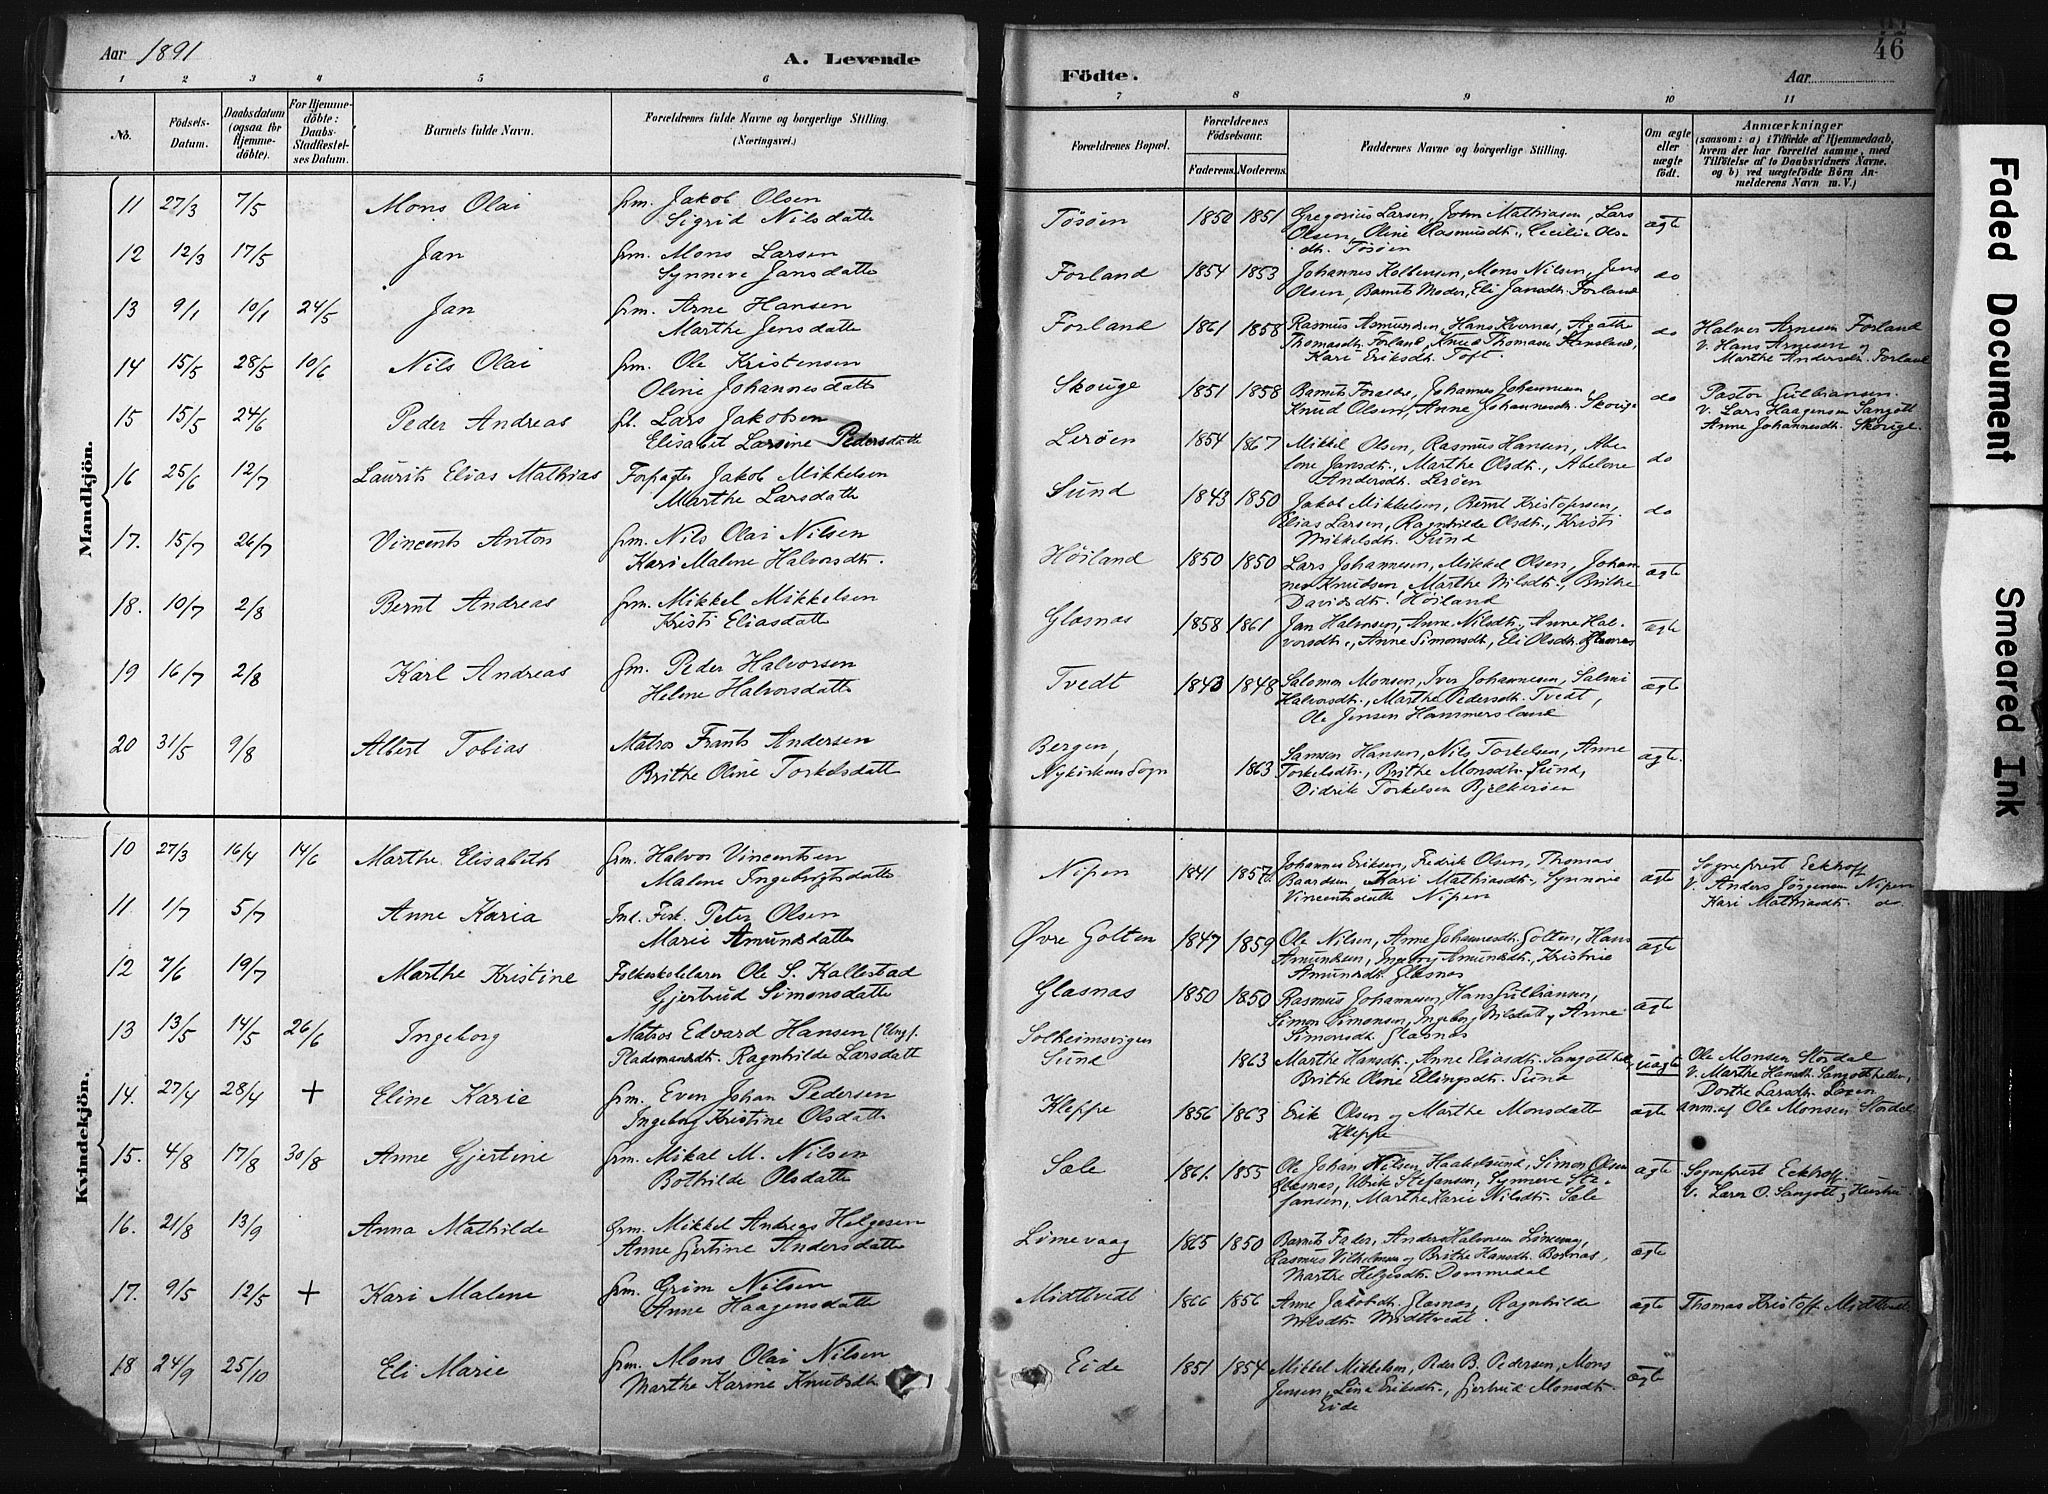 Aar 1891
A. Levende
Födte.
Aar
46
1 2 3 4 5 6
7 8 9 10 11
No.
Födsels-Datum.
Daabsdatum (ogsaa for Hjemme-döbte).
For Hjemme-döbte: Daabs-Stadfæstel-ses Datum.
Barnets fulde Navn.
Forældrenes fulde Navne og borgerlige Stilling. (Næringsvei.)
Forældrenes Bopæl.
Forældrenes Födselsaar.
Faderens. Moderens.
Faddernes Navne og borgerlige Stilling.
Om ægte eller uægte födt.
Anmærkninger
(saasom: a) i Tilfælde af Hjemmedaab,
hvem der har forrettet samme, med
Tilföielse af to Daabsvidners Navne.
og b) ved uægtefödte Börn An-
melderens Navn m. V.)
Mandkjön.
11 27/3 7/5 Mons Olai grm. Jakob Olsen
Sigrid Nilsdatte
Tösöen 1850 1851 Gregorius Larsen, John Mathiasen, Lars
Olsen, Oline Rasmusdt., Cecilie Ols-
dt. Tösöen
ægte
12 12/3 17/5 Jan grm. Mons Larsen
Synneve Jansdatte
Forland 1854 1853 Johannes Koldensen, Mons Nilsen, Jens
Olsen, Barnets Moder, Eli Jansdt. Forland
do
13 9/1 10/1 24/5 Jan grm. Arne Hansen
Marthe Jensdatte
Forland 1861 1858 Rasmus Asmundsen, Hans Kvernas, Agathe
Thomasdt. Forland, Knud Thomasen
Kari Eriksdt. Toft.
do
Halvor Arnesen Forland
v. Hans Arnesen og
Marthe Andersdt. Forland
14 15/5 28/5 10/6 Nils Olai grm. Ole Kristensen
Oline Johannesdatte
Skouge 1851 1858 Barnets Forældre, Johannes Johannesen
Knud Olsen, Anne Johannesdt. Skouge
do
Pastor Gulbransen.
v. Lars Haagensen Sangolt
Anne Johannesdt. Skouge.
15 15/5 24/6 Peder Andreas Lars Jakobsen
Elisabet Larsine Pedersdatte
Leröen 1854 1867 Mikkel Olsen, Rasmus Hansen, Abe-
lone Jansdt., Marthe Olsdt., Abelone
Andersdt. Leröen
do
16 25/6 12/7 Laurits Elias Mathias Forpagter Jakob Mikkelsen
Marthe Larsdatte
Sund 1843 1850 Jakob Mikkelsen, Bernt Kristofersen,
Elias Larsen, Ragnhilde Olsdt., Kristi
Mikkelsdt. Sund
do
17. 15/7 26/7 Vincents Anton grm. Nils Olai Nilsen
Kari Malene Halvorsdt.
Höiland 1850 1850 Lars Johannesen, Mikkel Olsen, Johan-
nes Knudsen, Marthe Nilsdt., Brithe
Davidsdt. Höiland
ægte
18. 10/7 2/8 Bernt Andreas grm. Mikkel Mikkelsen
Kristi Eliasdatte
Glasnas 1858 1861 Jan Halvorsen, Anne Nilsdt., Anne Hal-
vorsdt., Anne Simonsdt, Eli Olsdt. Glasnas
ægte
19 16/7 2/8 Karl Andreas grm. Peder Halvorsen
Helene Halvorsdatte
Tvedt 1843 1848 Salomon Monsen, Iver Johannesen, Salmi
Halvorsdt., Marthe Pedersdt. Tvedt,
Ole Jensen Hammersland
ægte
20 31/5 9/8 Albert Tobias Matros Frants Andersen
Brithe Oline Torkelsdatte
Bergen,
Nykirkens Sogn
1863 Samson Hansen, Nils Torkelsen, Anne
Torkelsdt., Brithe Monsdt. Sund,
Didrik Torkelsen Bjelkeröen
ægte.
Kvindekjön.
10 27/3 16/4 14/6 Marthe Elisabeth grm. Halvor Vincentsen
Malene Ingebrigtsdatte
Nipen 1841 1857 Johannes Eriksen, Fredrik Olsen, Thomas
Baardsen, Kari Mathiasdt., Synnøve
Vincentsdatte Nipen
ægte
Sogneprest Eckhoff
v. Anders Jörgensen Nipen
Kari Mathiasdt. do.
11 1/7 5/7 Anne Karia Ind. Fisk. Peter Olsen
Marie Amundsdatte
Øvre Golten 1847 1859 Ole Nilsen, Anne Johannesdt. Golten, Hans
Amundsen, Ingeborg Amundsdt., Kristine
Amundsdt. Glasnas
ægte
12 7/6 19/7 Marthe Kristine Folkeskolelærer Ole S. Kallestad
Gjertrud Simonsdatte
Glasnas 1850 1850 Rasmus Johannesen, Hans Gulbransen,
Simon Simonsen, Ingeborg Nilsdat og Anne
Simonsdt. Glasnas
ægte
13 13/5 14/5 26/6 Ingeborg Matros Edvard Hansen (Ung).
Pladsmandsdt. Ragnhilde Larsdatt
Solheimsvigen
Sund
1863 Marthe Hansdt., Anne Eliasdt. Sangolthel.
Brithe Oline Ellingsdt. Sund
uægte
Ole Monsen Stordal
v. Marthe Hansdt. Sangolthellen,
Dorthe Larsdt.
14. 27/4 28/4 + Eline Karie grm. Even Johan Pedersen
Ingeborg Kristine Olsdatte
Kleppe 1856 1863 Erik Olsen og Marthe Monsdatte
Kleppe
ægte
anm. af Ole Monsen Stordal
15. 4/8 17/8 30/8 Anne Gjertine grm. Mikal M. Nilsen
Bothilde Olsdatte
Sæle 1861. 1855 Ole Johan Nilsen Haakelsund, Simon Olsen
Glasnas, Ulrik Stefansen, Synneve Ste-
fansen, Marthe Karie Nilsdt. Sæle
ægte
Sogneprest Eckhoff.
v. Lærer O. Sangolt og Hustru
16. 21/8 13/9 Anna Mathilde Grm. Mikkel Andreas Helgesen
Anne Gjertine Andersdatte
Limevaag 1865 1850 Barnets Fader, Anders Halvorsen Limevaag,
Rasmus Vilhelmsen og Brithe Hansdt. Bornas,
Marthe Helgesdt. Dommedal
ægte
17. 9/5 12/5 + Kari Malene grm. Grim Nilsen
Anne Haagensdatte
Midttvedt 1866 1856 Anne Jakobsdt. Glasnas, Ragnhilde
Nilsdt. Midttvedt.
ægte
Thomas Kristoff. Midttvedt
18 24/9 25/10 Eli Marie grm. Mons Olai Nilsen
Marthe Karine Knutsdt.
Eide 1851 1854 Mikkel Mikkelsen, Peder B. Pedersen, Mons
Jensen, Lina Eriksdt., Gjertrud Monsdt.
Eide
ægte
Faded Document
Smeared Ink